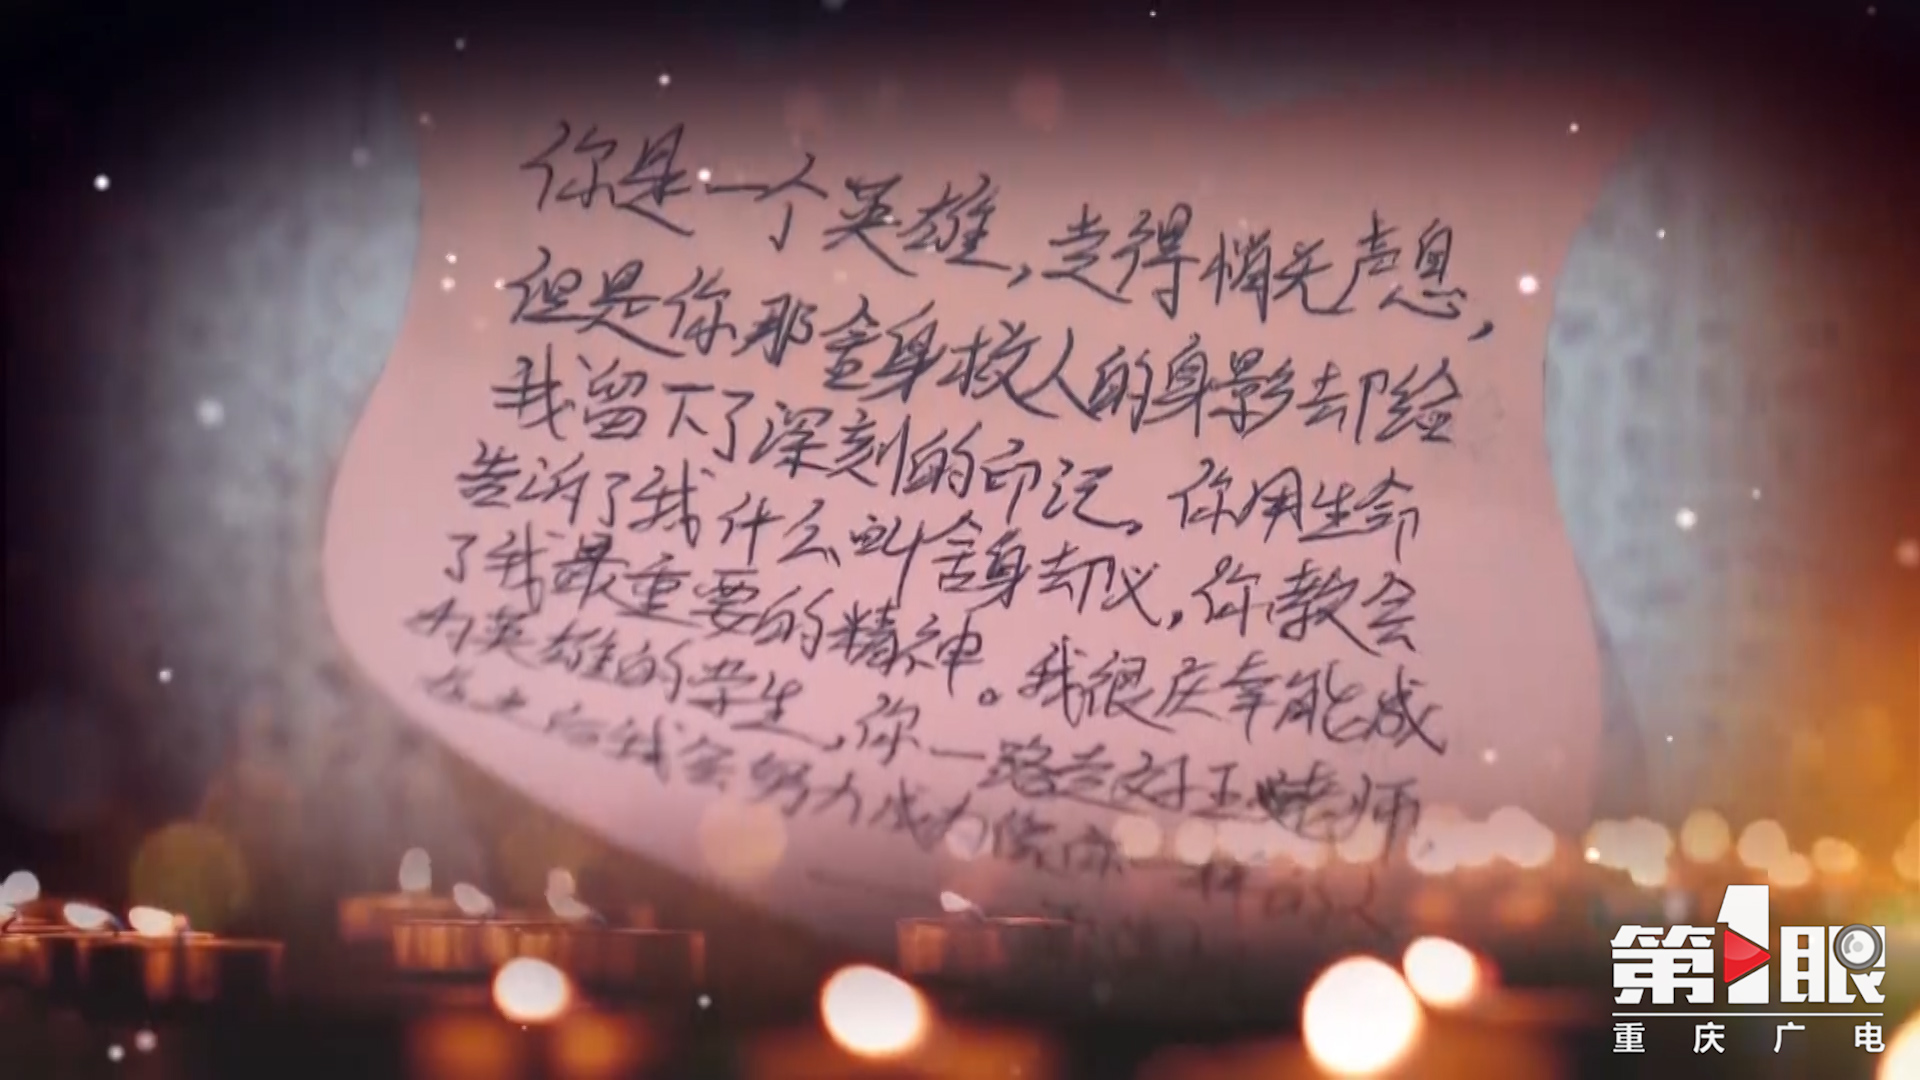 你是一个英雄，走得悄无声息，
但是你那舍身救人的身影却给
我留下了深刻的印记。你用生命
告诉了我什么叫舍身取义，你教会
了我最重要的精神。我很庆幸能成
为英雄的学生，你一路走好王老师，
后我会努力成为像你一样的人
第1眼
重庆广电